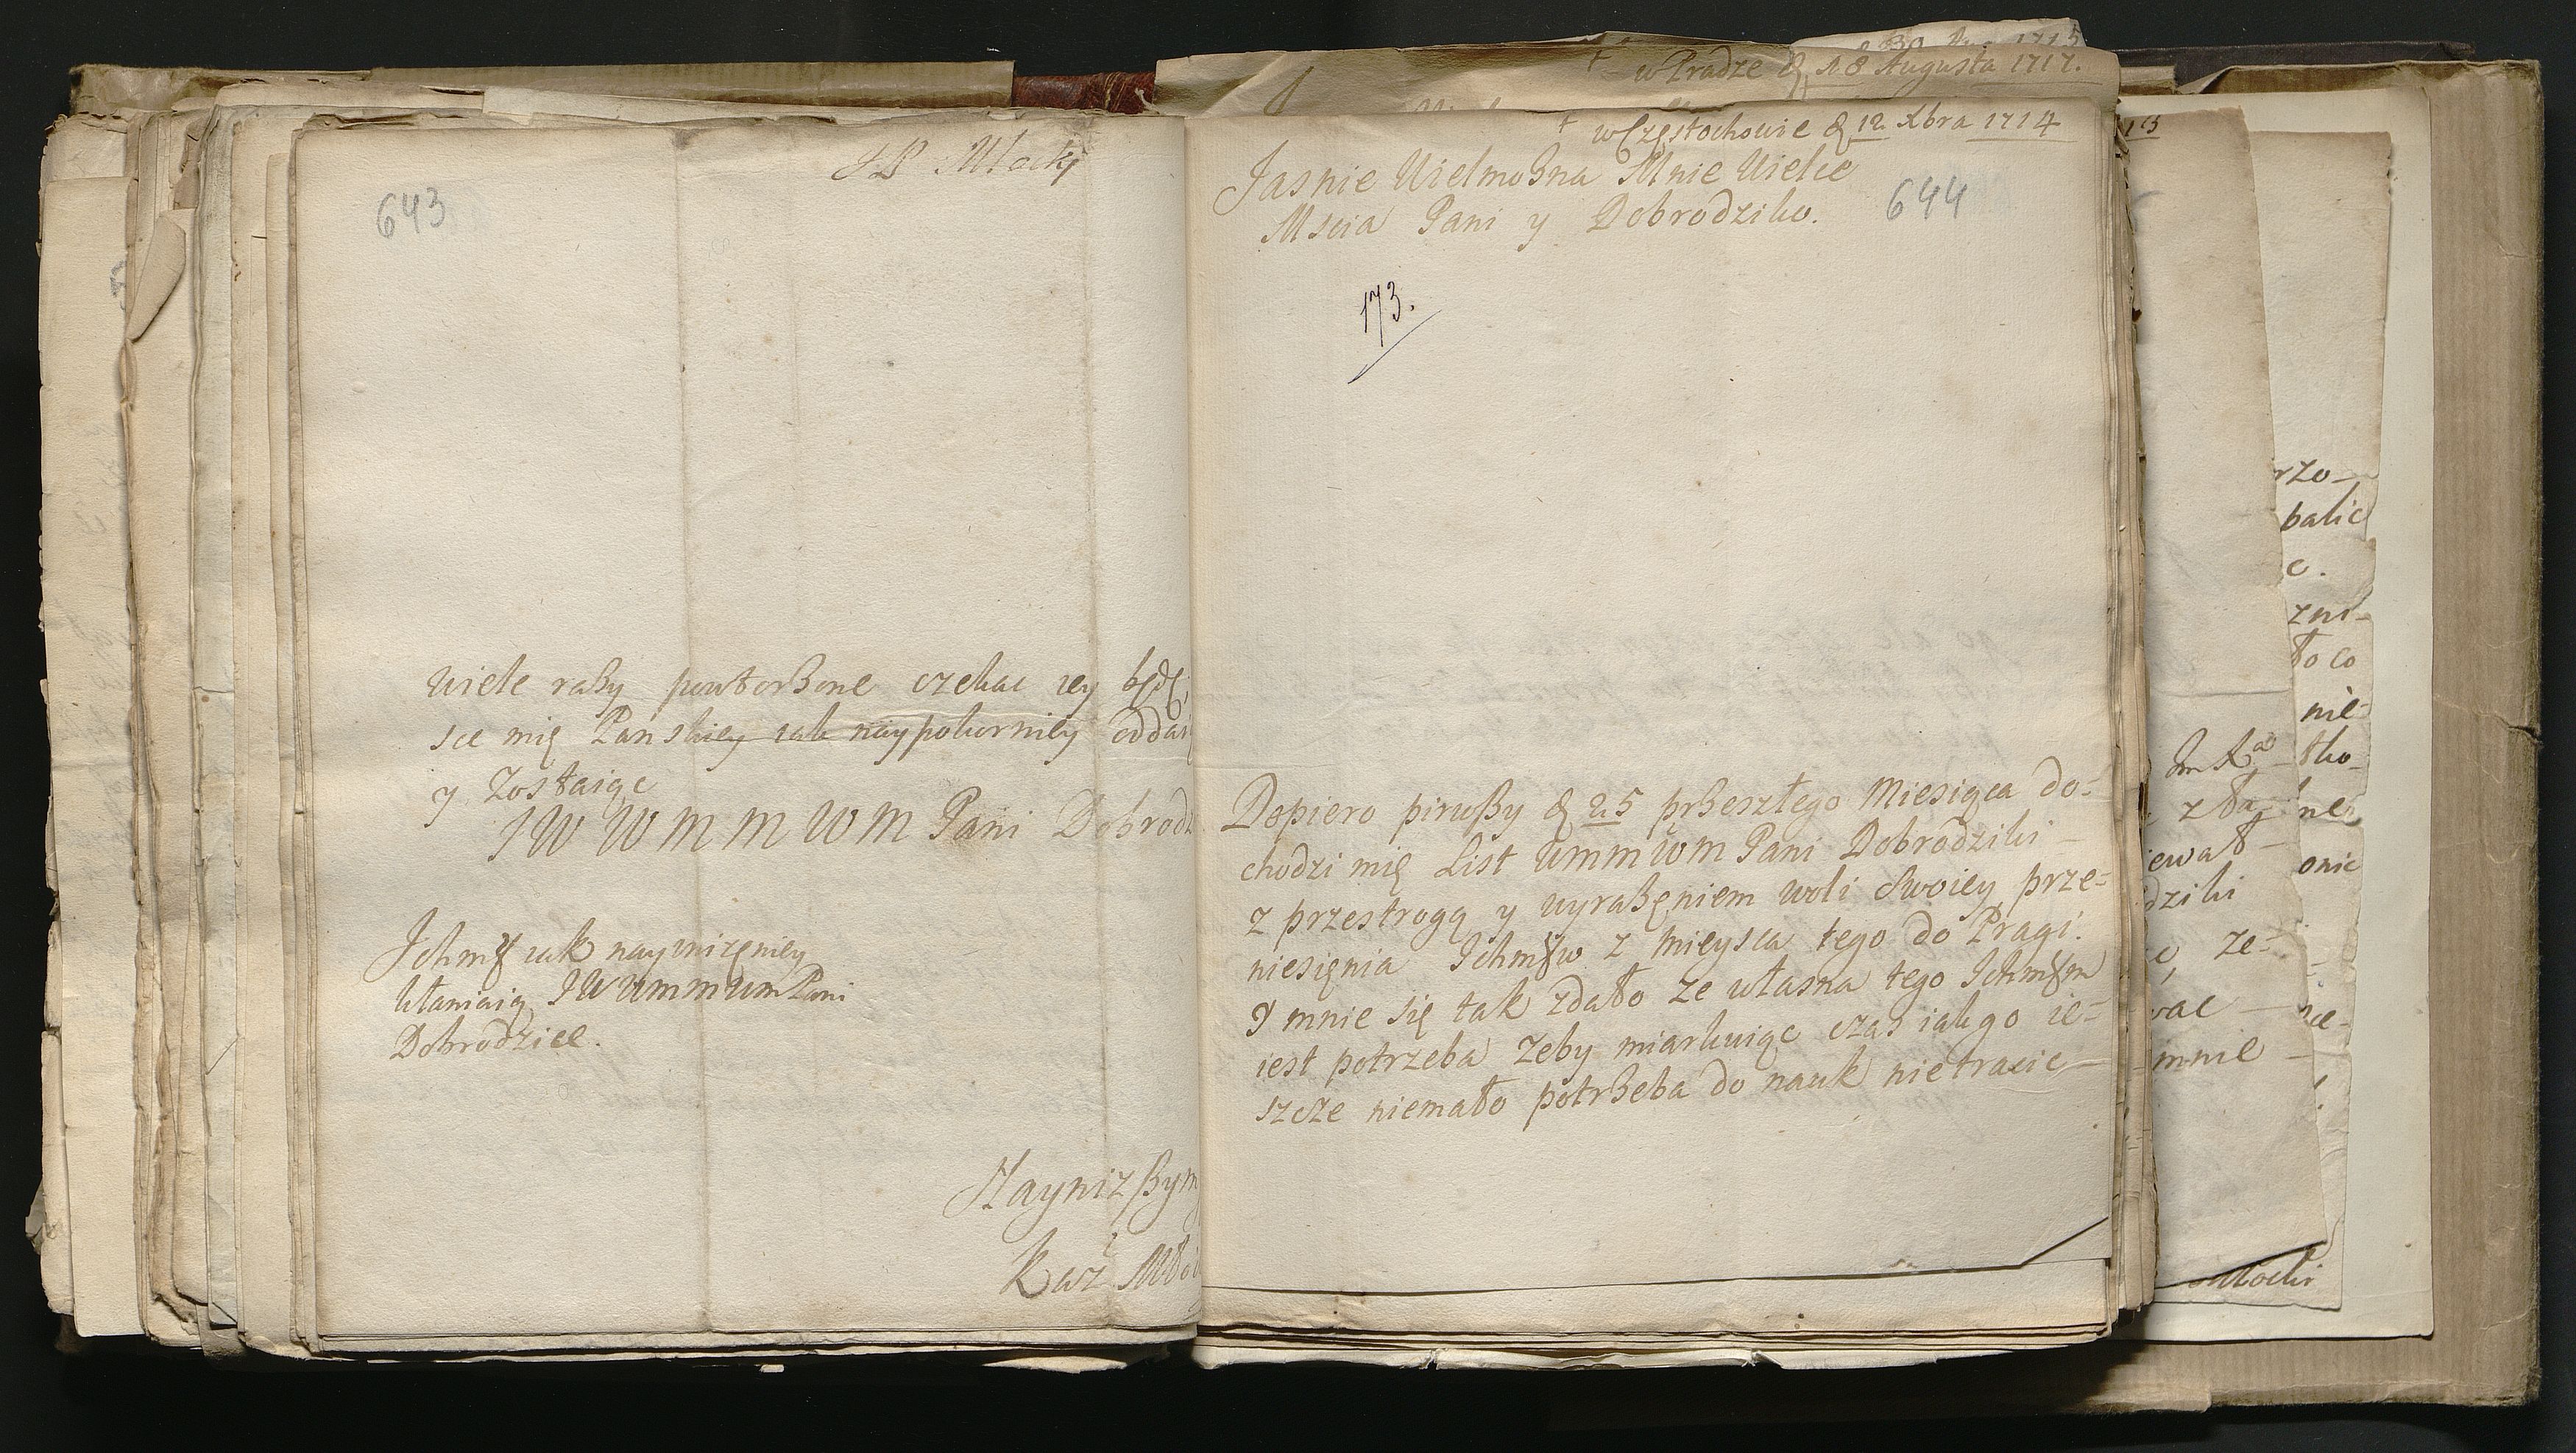 JP Młocki
643
wiele raßy powtorßone czekac iey będę,
sce mię Panskiey iak naypokorniey oddai
y Zostaiąc
JW W M M W M Pani Dobrodz
Ichmę iak nayunizęniey
kłaniaią JWWmmWm Pani
Dobrodzice.
Naynizßym
Kaz Młoc
w Pradze d 18 Augusta 1717.
+ w Częstochowie d 12 Xbra 1714
Jasnie Wielmoßna Mnie Wielce
Mscia Pani y Dobrodziko.
644
173.
Dopiero pirußy d 25 prßeszłego Miesiąca do-
chodzi mię List WmmWm Pani Dobrodziki
z przestrogą y wyraßęniem woli Swoiey prze-
niesięnia Ichmęw z mieysca tego do Pragi.
Y mnie się tak zdało ze własna tego Ichmęm
iest potrzeba zeby miarkuiąc czas iakgo ie-
szcze niemało potrßeba do nauk nietracic
rzo-
balic
c.
zni-
ło co
nie-
tko-
ne
onie
ewał
dziki
ze-
wac
mnie
Młocki